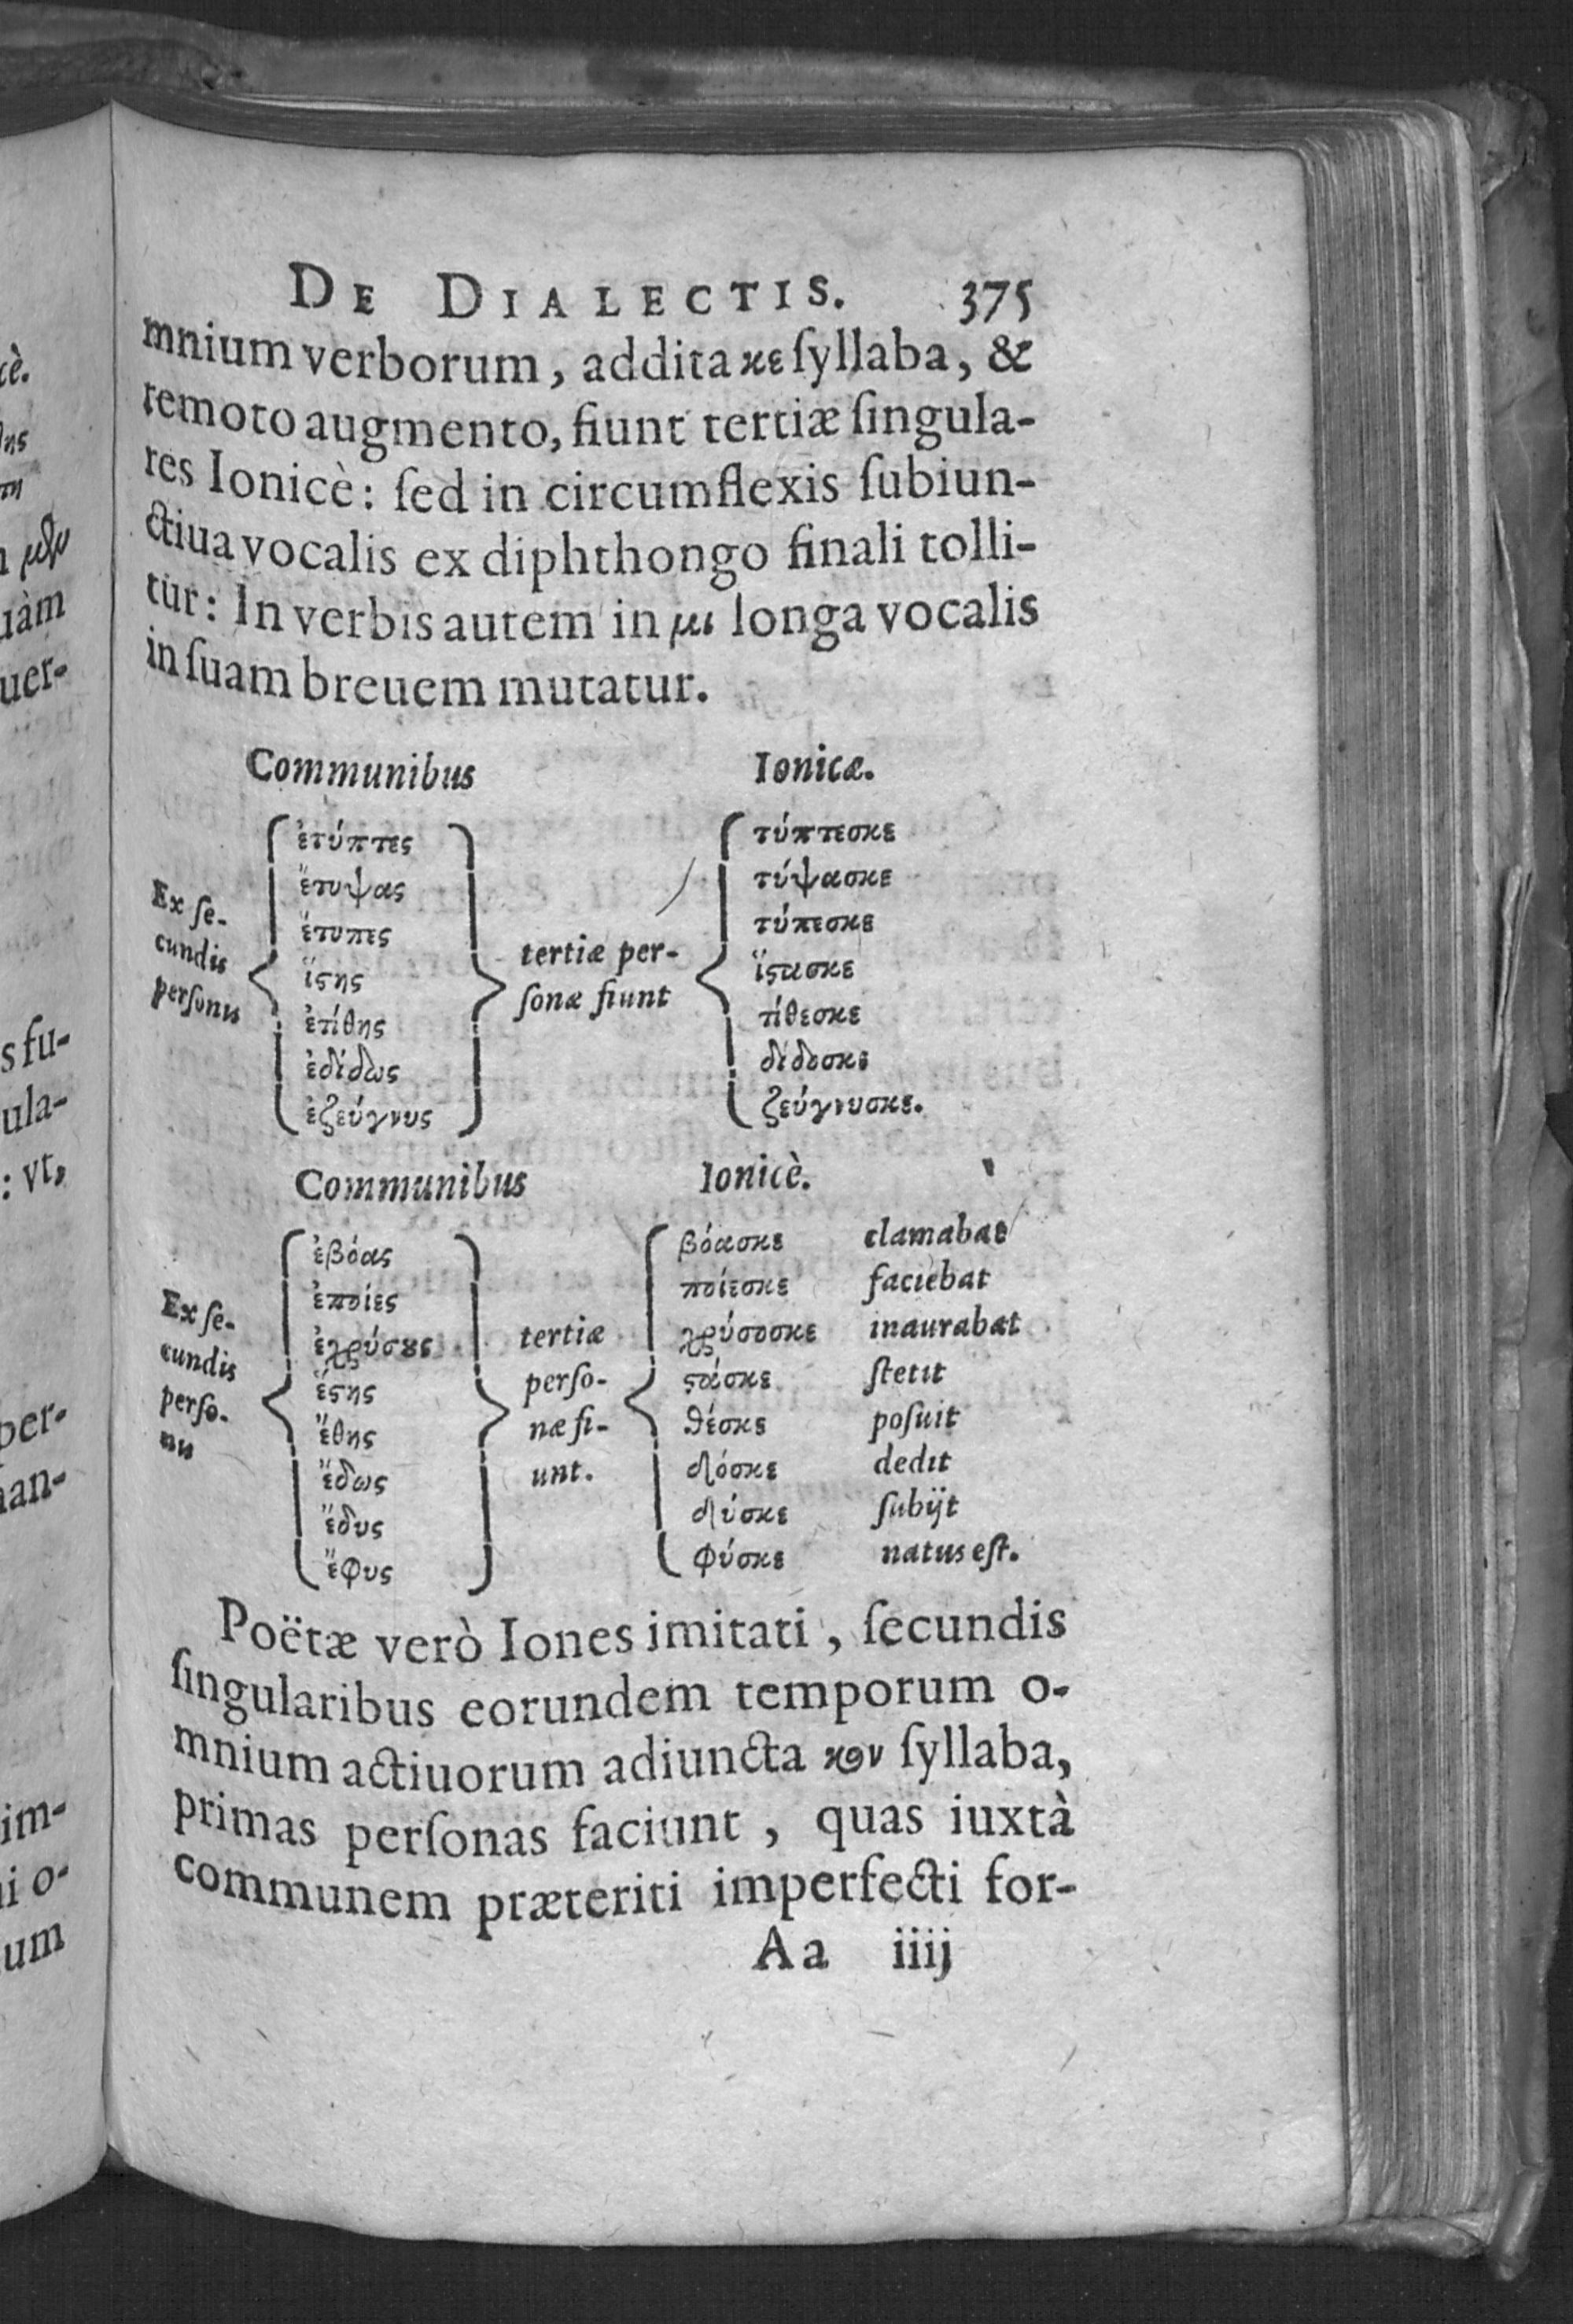 DE DIALECTIS. 375
mnium verborum, addita κε ſyllaba, &
remoto augmento, fiunt tertiæ ſingula-
res Ionicè: ſed in circumflexis ſubiun-
ctiua vocalis ex diphthongo finali tolli-
tur: In verbis autem in μι longa vocalis
in ſuam breuem mutatur.
Communibus Ionicæ.
Ex ſe-
cundis
perſonis
ἐτύπτες
ἔτυψας
ἔτυπες
ἵςης
ἐτίθης
ἐδίδως
ἐζεύγνυς
tertiæ per-
ſonæ fiunt
τύπτεσκε
τύψασκε
τύπεσκε
ἵςασκε
τίθεσκε
δίδοσκε
ζεύγνυσκε.
Communibus Ionicè.
Ex ſe-
cundis
perſo-
nis
ἐβόας
ἐποίες
ἐχρύσȣς
ἔςης
ἔθης
ἔδως
ἔδυς
ἔφυς
tertiæ
perſo-
næ fi-
unt.
βόασκε clamabat
ποίεσκε faciebat
χρύσοσκε inaurabat
ςάσκε ſtetit
θέσκε poſuit
δόσκε dedit
δύσκε ſubijt
φύσκε natus eſt.
Poëtæ verò Iones imitati, ſecundis
ſingularibus eorundem temporum o-
mnium actiuorum adiuncta κον ſyllaba,
primas perſonas faciunt, quas iuxtà
communem præteriti imperfecti for-
Aa iiij